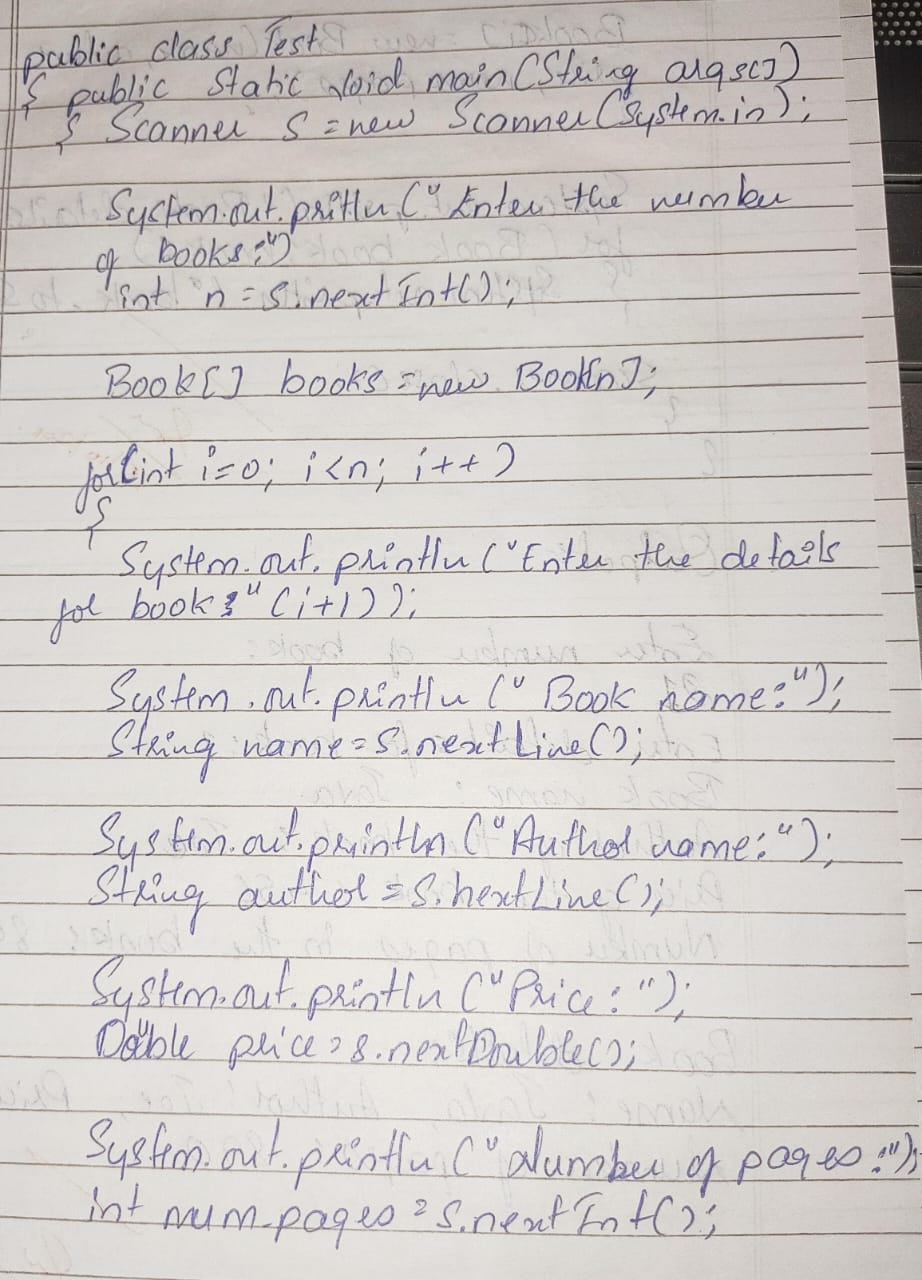 public class Test
{ public static void main(String args[])
{ Scanner s = new Scanner(System.in);
System.out.pritln("Enter the number
of books:")
int n = s.nextInt();
Book[] books = new Book[n];
for(int i=0; i<n; i++)
{
System.out.println("Enter the details
for book:" (i+1));
System.out.println("Book name:");
String name = s.nextLine();
System.out.println("Author name:");
String author = s.nextLine();
System.out.println("Price:");
Double price = s.nextDouble();
System.out.println("Number of pages:");
int num_pages = s.nextInt();